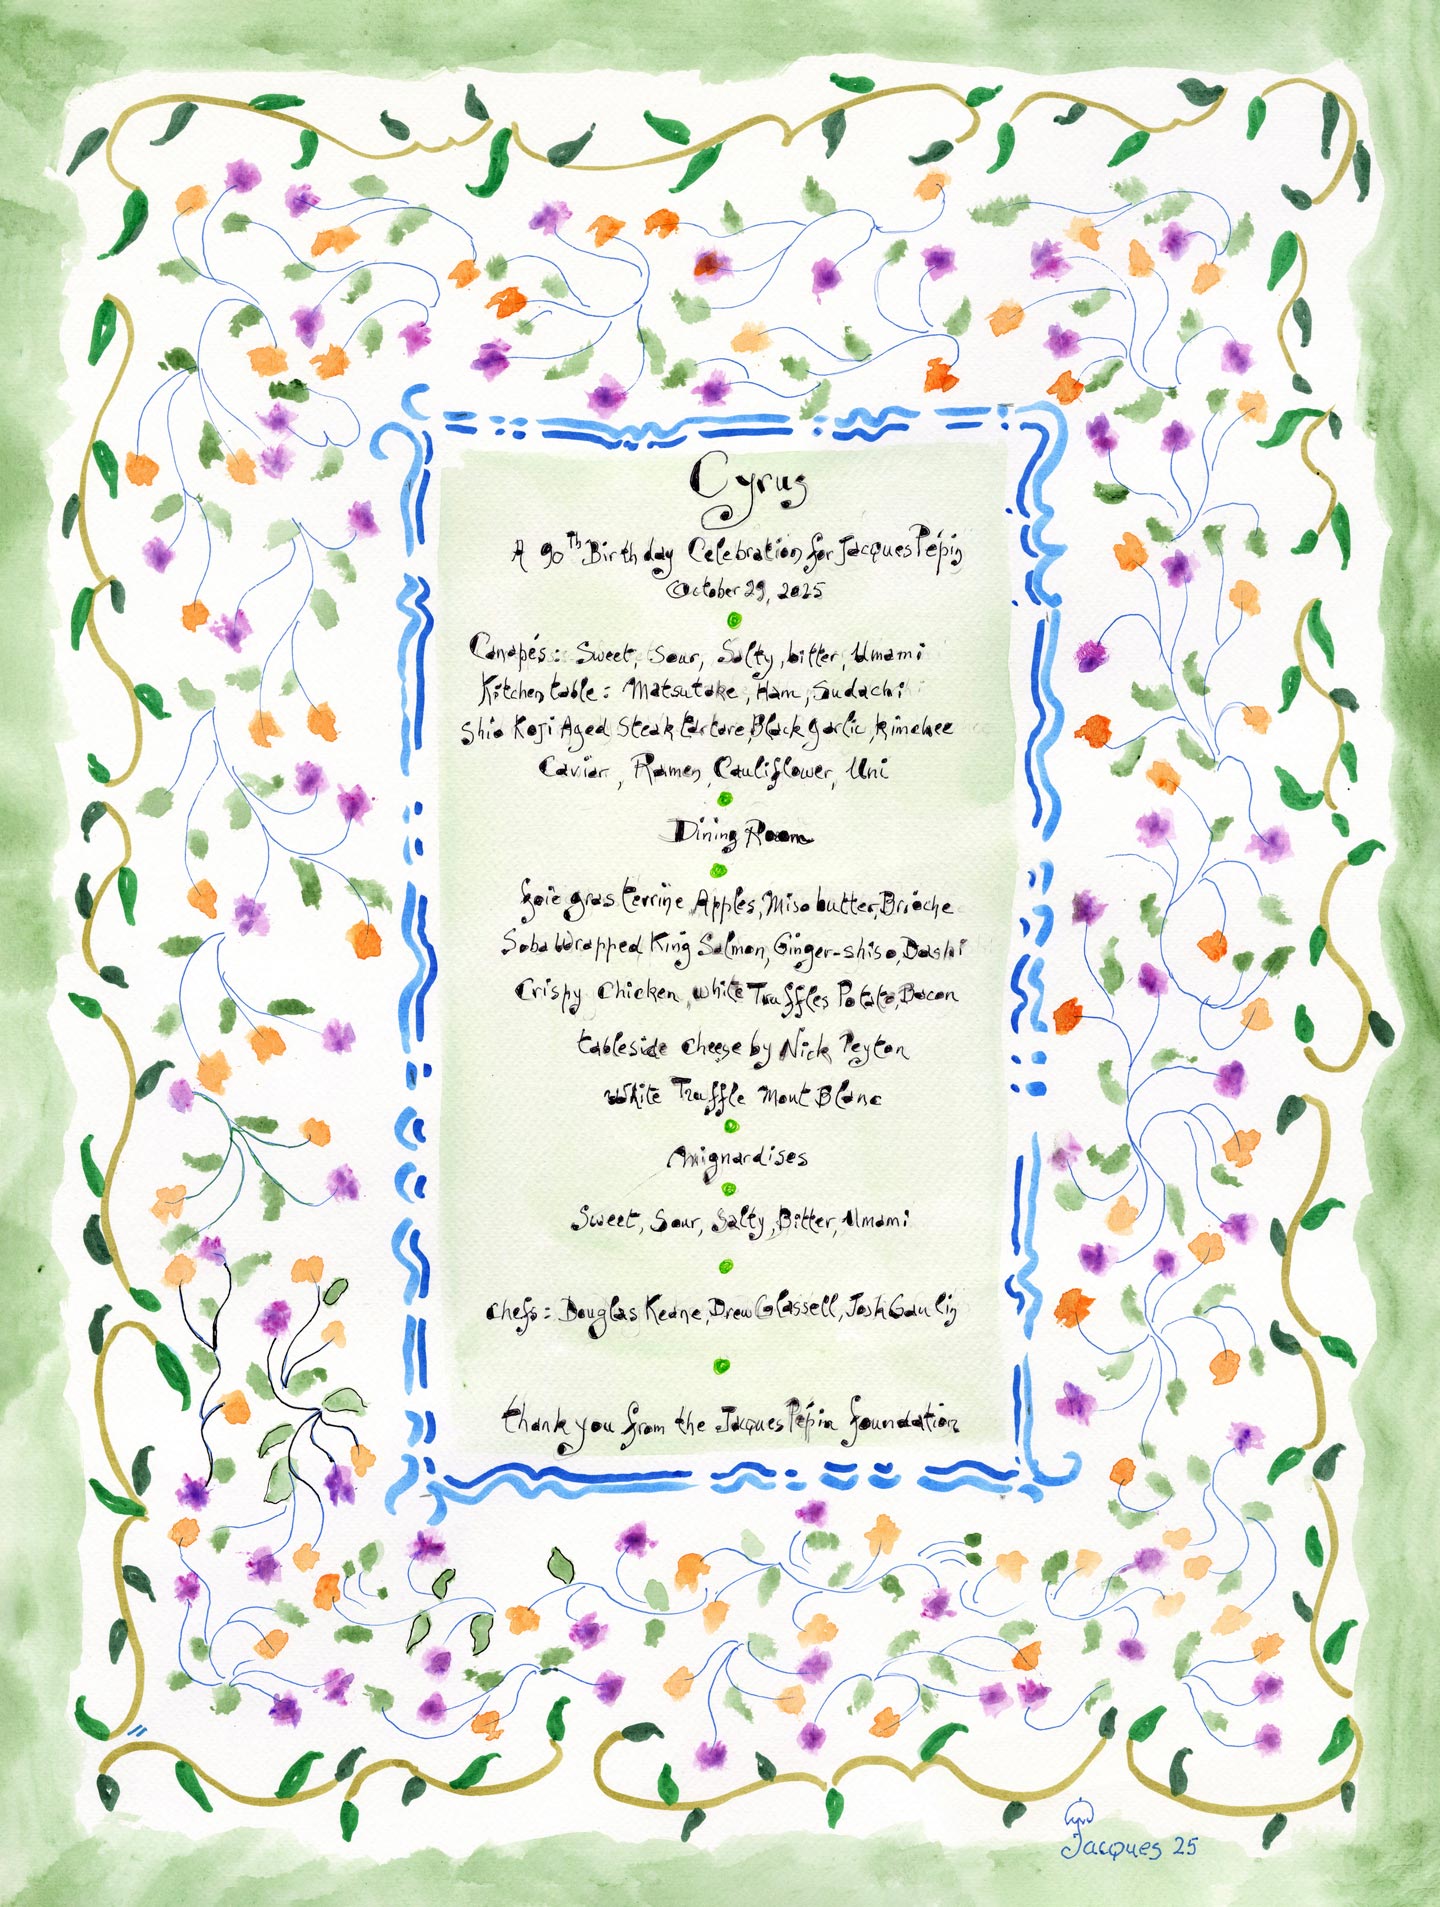 Cyrus
A 90th Birthday Celebration for Jacques Pépin
October 29, 2025
Canapés: Sweet, Sour, Salty, bitter, Umami
Kitchen table: Matsutake, Ham, Sudachi
Shio Koji Aged Steak tartare, Black garlic, kimchee
Caviar, Ramen, Cauliflower, Uni
Dining Room
foie gras terrine Apples, Miso butter, Brioche
Soba Wrapped King Salmon, Ginger-shiso, Dashi
Crispy Chicken, White Truffles Potato, Bacon
tableside cheese by Nick Peyton
White Truffle Mont Blanc
Mignardises
Sweet, Sour, Salty, Bitter, Umami
chefs: Douglas Keane, Drew Glassell, Josh Gaulin
thank you from the Jacques Pépin foundation
Jacques 25